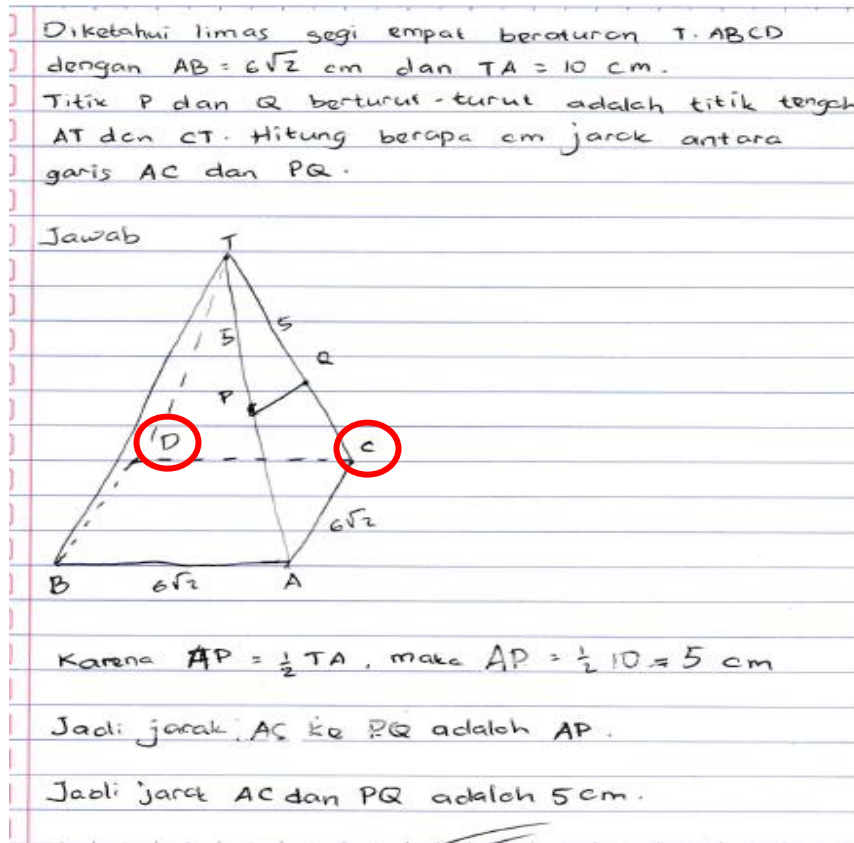 Diketahui limas segi empat beraturan T.ABCD
dengan AB = 6√2 cm dan TA = 10 cm.
Titik P dan Q berturut-turut adalah titik tengah
AT dan CT. Hitung berapa cm jarak antara
garis AC dan PQ.
Jawab
T
5
5
Q
P
D
C
6√2
B
6√2
A
Karena AP = 1/2 TA, maka AP = 1/2 10 = 5 cm
Jadi jarak AC ke PQ adalah AP.
Jadi jarak AC dan PQ adalah 5 cm.